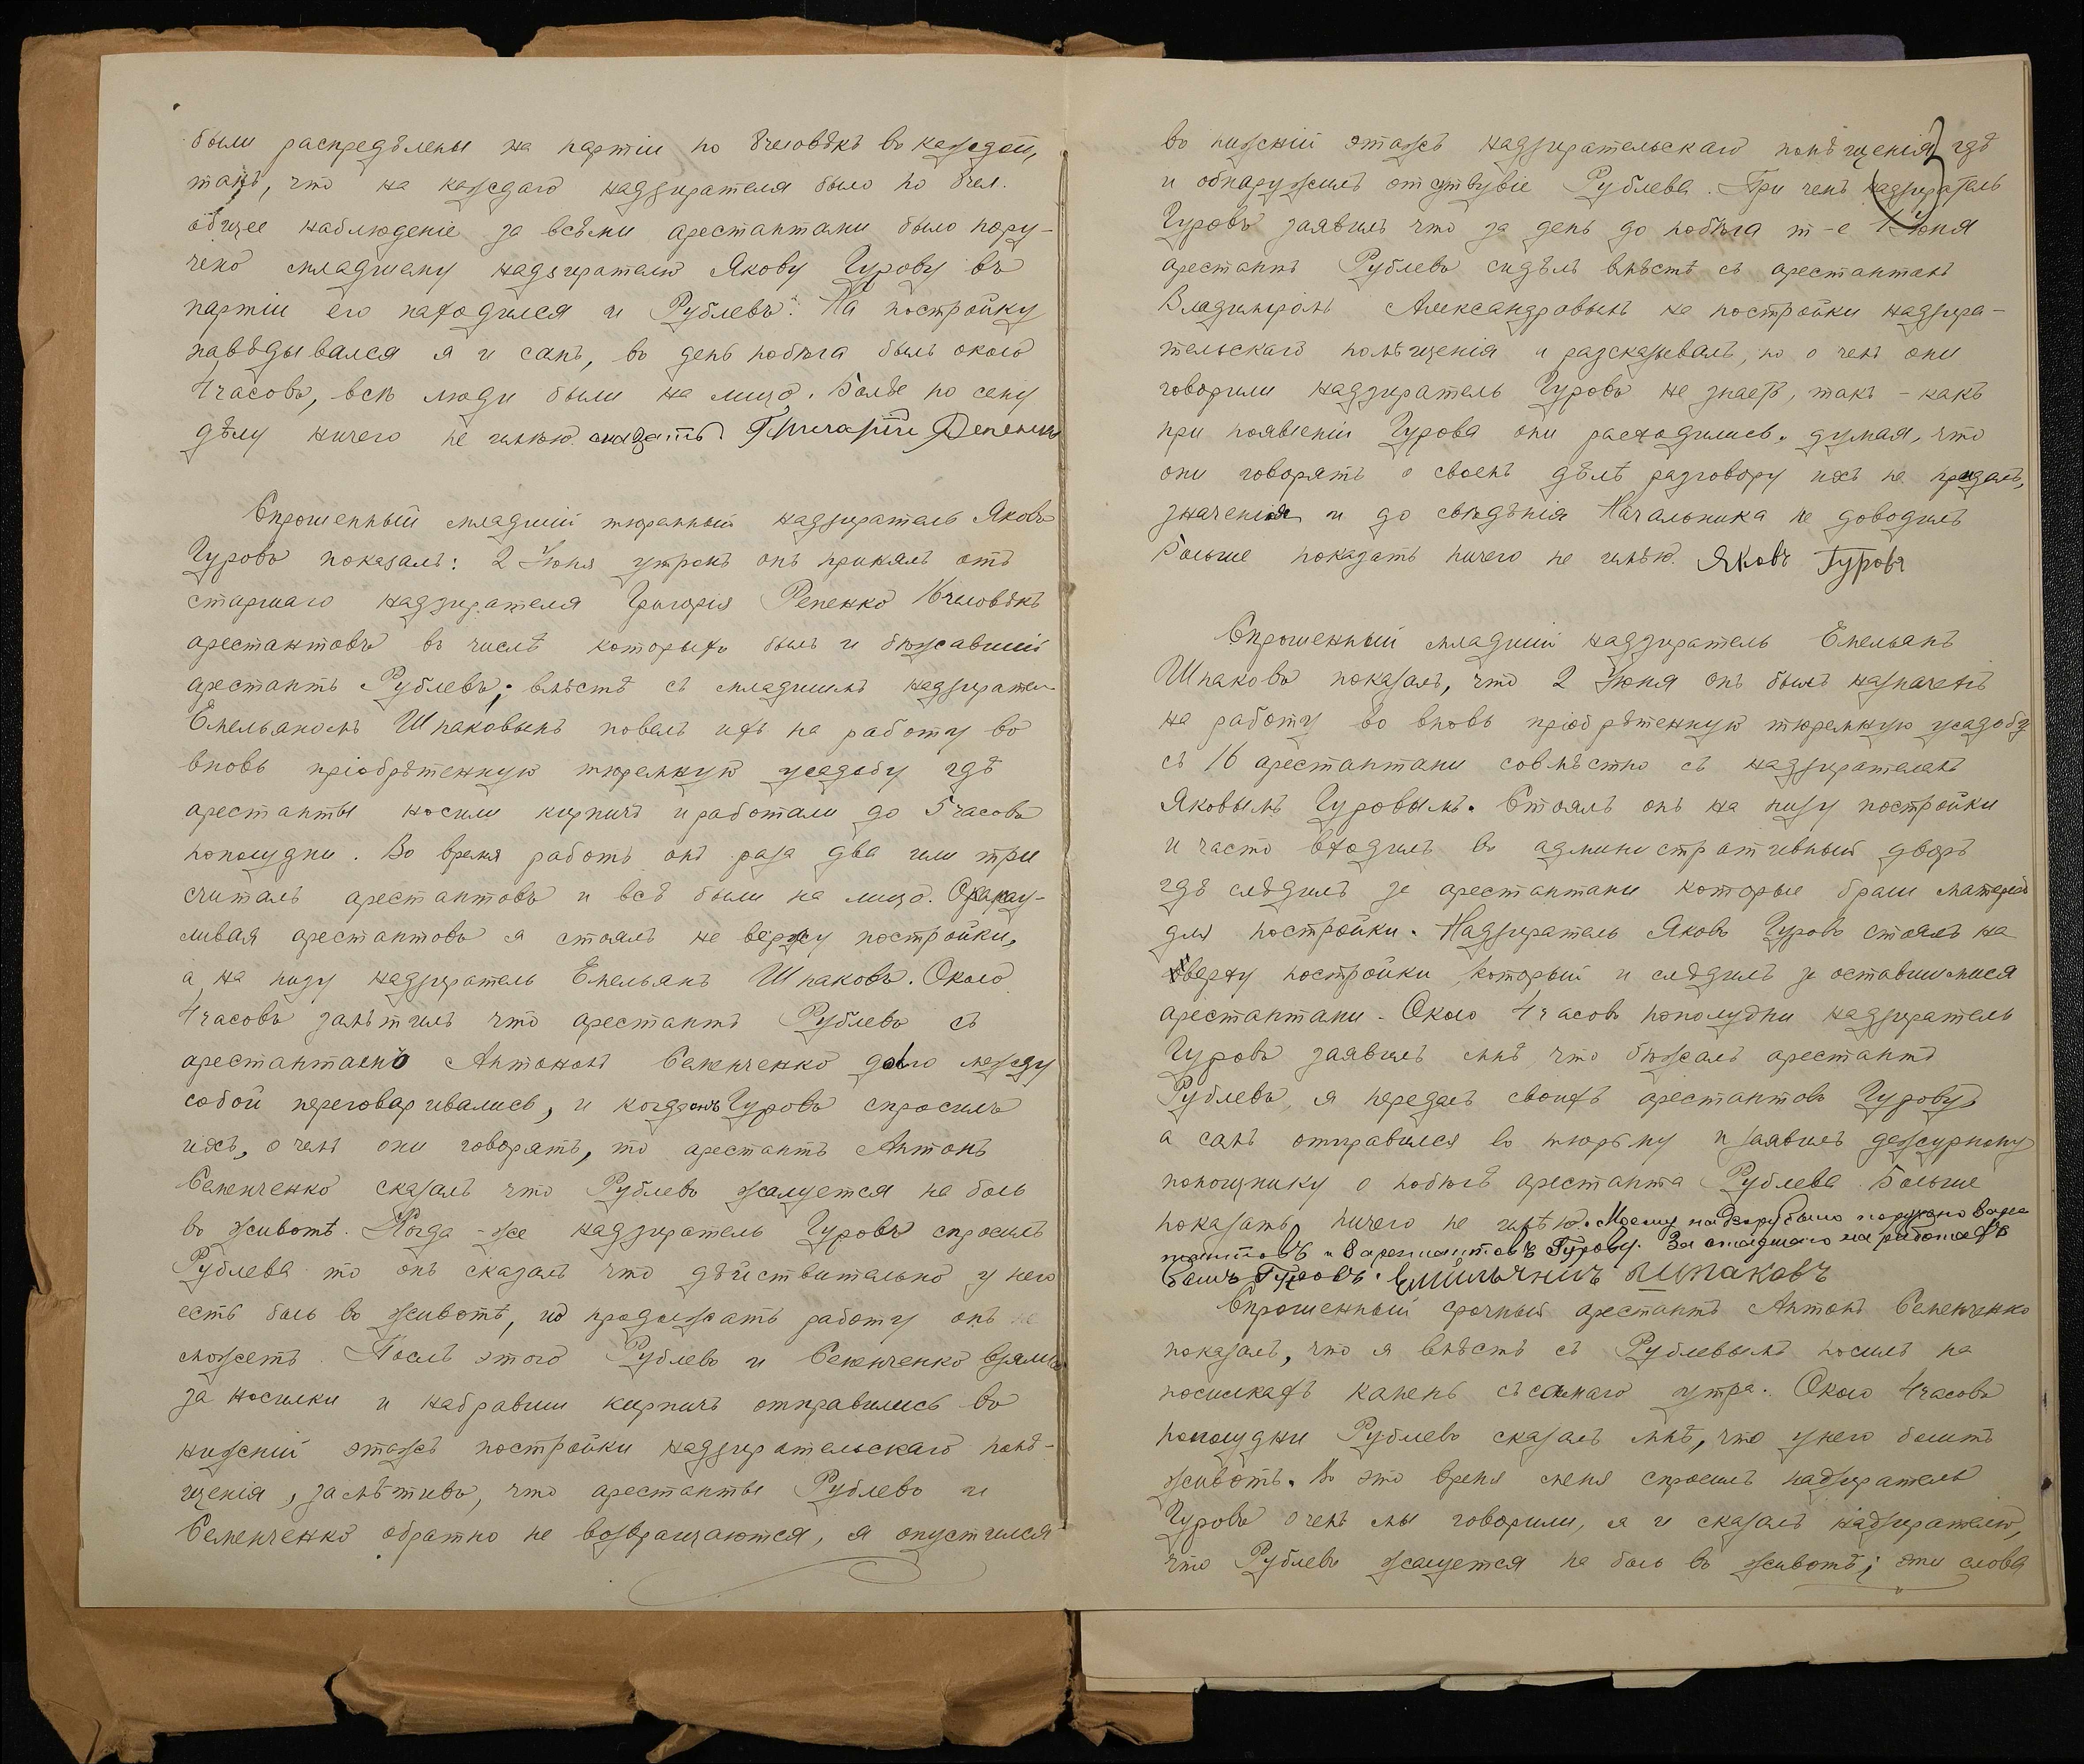 были распредѣлены на партіи по 8 человѣкъ въ каждой,
такъ, что на каждаго надзирателя было по 8 чел.
общее наблюденіе за всѣми арестантами было пору-
чено младшему надзирателю Якову Гурову въ
партіи его находился и Рублевъ. На постройку
навѣдывался я и самъ, въ день побѣга былъ около
4 часовъ, всѣ люди были на лицо. Болѣе по сему
дѣлу ничего не имѣю сказать. Григорій Репенко
Спрошенный младшій тюремный надзиратель Яковъ
Гуровъ показалъ: 2 Іюня утромъ онъ принялъ отъ
старшаго надзирателя Григорія Репенко 16 человѣкъ
арестантовъ въ числѣ которыхъ былъ и бѣжавшій
арестантъ Рублевъ; вмѣстѣ съ младшимъ надзирател.
Емельяномъ Шпаковымъ повелъ ихъ на работу во
вновь пріобрѣтенную тюремную усадьбу гдѣ
арестанты носили кирпичъ и работали до 5 часовъ
пополудни. Во время работъ онъ раза два или три
считалъ арестантовъ и всѣ были на лицо. Окарау-
ливая арестантовъ я стоялъ на верху постройки,
а на низу надзиратель Емельянъ Шпаковъ. Около
4 часовъ замѣтилъ что арестантъ Рублевъ съ
арестантомъ Антономъ Семенченко долго между
собой переговаривались, и когда онъ Гуровъ спросилъ
ихъ, о чемъ они говорятъ, то арестантъ Антонъ
Семенченко сказалъ что Рублевъ жалуется на боль
въ животѣ. Когда-же надзиратель Гуровъ спросилъ
Рублева то онъ сказалъ что дѣйствительно у него
есть боль въ животѣ, но продолжать работу онъ не
можетъ. Послѣ этого Рублевъ и Семенченко взялись
за носилки и набравши кирпичъ отправились въ
нижній этажъ постройки надзирательскаго помѣ-
щенія, замѣтивъ, что арестанты Рублевъ и
Семенченко обратно не возвращаются, я опустился
въ нижній этажъ надзирательскаго помѣщенія, гдѣ
и обнаружилъ отсутствіе Рублева. При чемъ надзиратель
Гуровъ заявилъ что за день до побѣга т-е 1 Іюня
арестантъ Рублевъ сидѣлъ вмѣстѣ съ арестантомъ
Владиміромъ Александровымъ на постройки надзира-
тельскаго помѣщенія и разсказывалъ, но о чемъ они
говорили надзиратель Гуровъ не знаетъ, такъ-какъ
при появленіи Гурова они расходились. думая, что
они говорятъ о своемъ дѣлѣ разговору ихъ не придалъ,
значенія и до свѣдѣнія Начальника не доводилъ
Больше показать ничего не имѣю. Яковъ Гуровъ
Спрошенный младшій надзиратель Емельянъ
Шпаковъ показалъ, что 2 Іюня онъ былъ назначенъ
на работу во вновь пріобрѣтенную тюремную усадьбу
съ 16 арестантами совмѣстно съ надзирателемъ
Яковымъ Гуровымъ. Стоялъ онъ на низу постройки
и часто входилъ въ административный дворъ
гдѣ слѣдилъ за арестантами которые брали матеріалъ
для постройки. Надзиратель Яковъ Гуровъ стоялъ на
верху постройки, который и слѣдилъ за оставшимися
арестантами. Около 4 часовъ пополудни надзиратель
Гуровъ заявилъ мнѣ, что бѣжалъ арестантъ
Рублевъ, я передалъ своихъ арестантовъ Гурову,
а самъ отправился въ тюрьму и заявилъ дежурному
помощнику о побѣгѣ арестанта Рублева. Больше
показать ничего не имѣю. Моему надзору было поручено 8 арес
тантовъ и 8 арестантовъ Гурову. За старшаго на работахъ
былъ Гуровъ. Емильянъ Шпаковъ
Спрошенный срочный арестантъ Антонъ Семенченко
показалъ, что я вмѣстѣ съ Рублевымъ носилъ на
носилкахъ камень съ самаго утра. Около 4 часовъ
пополудни Рублевъ сказалъ мнѣ, что у него болитъ
животъ. Въ это время меня спросилъ надзиратель
Гуровъ о чемъ мы говорили, я и сказалъ надзирателю,
что Рублевъ жалуется на боль въ животѣ; эти слова